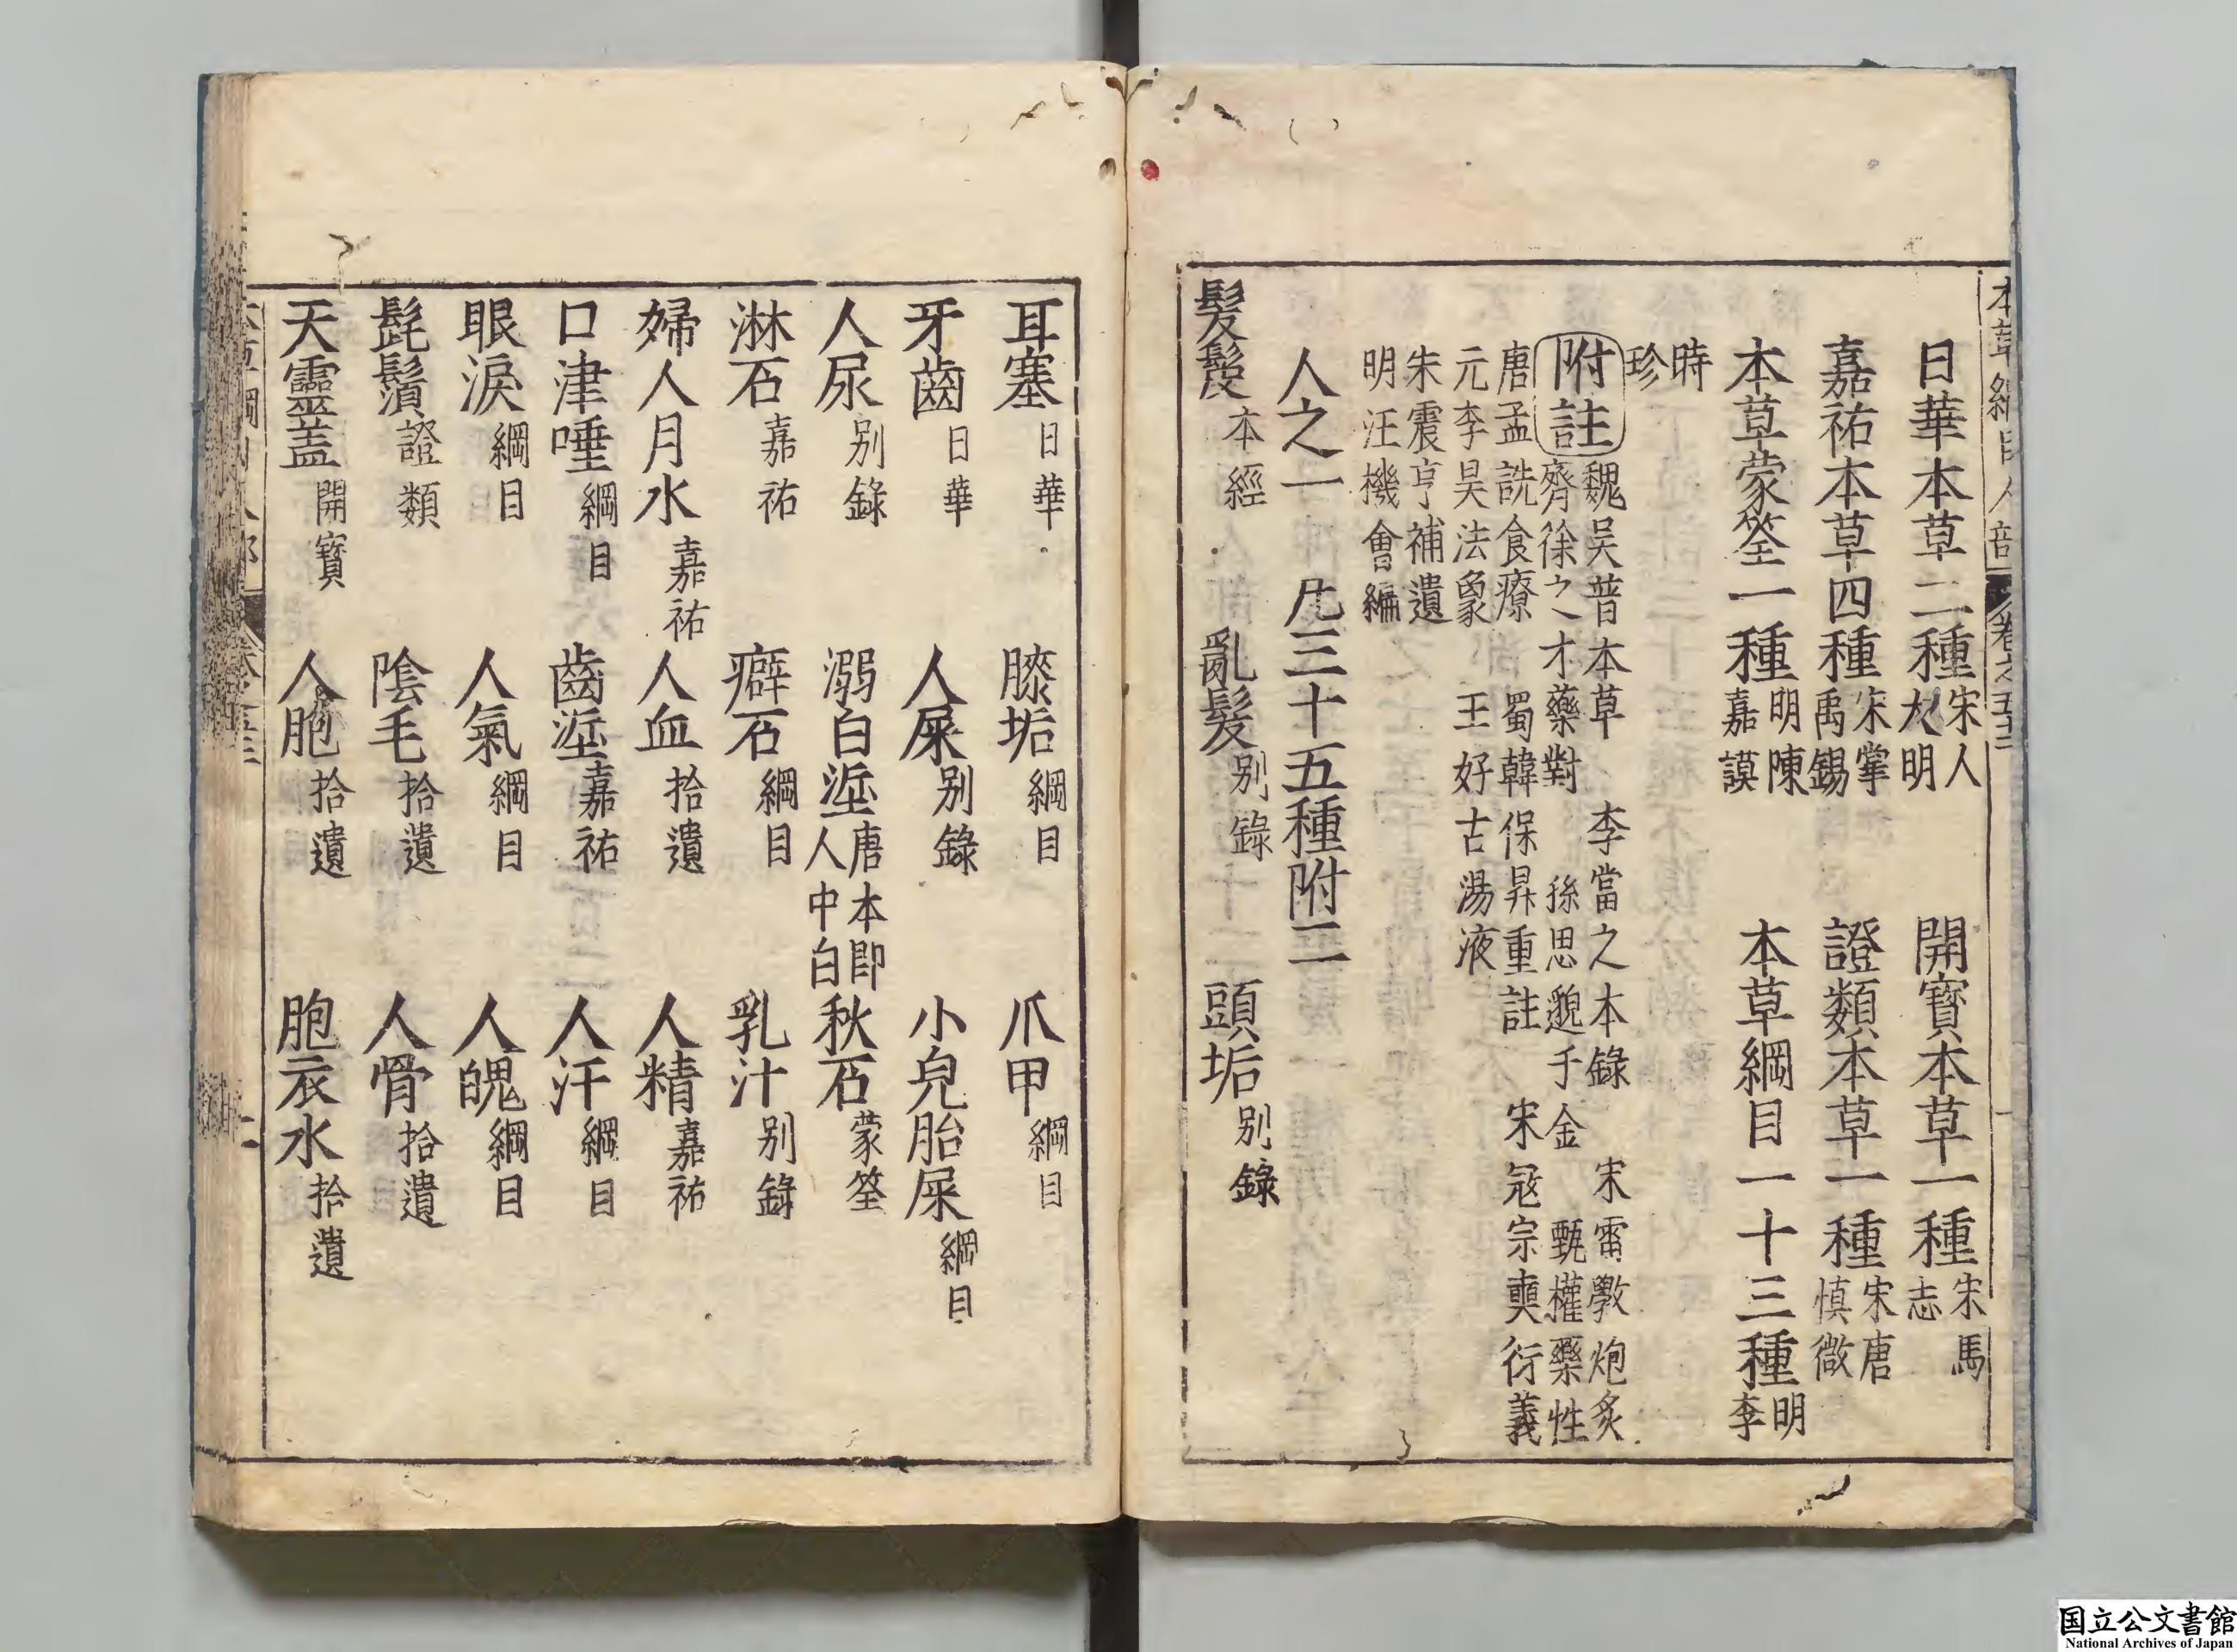 日華本草二種宋人大明 開寶本草一種宋馬志
嘉祐本草四種宋掌禹錫 證類本草一種宋唐慎微
本草蒙筌一種明陳嘉謨 本草綱目一十三種明李
時珍
附註魏吳普本草 李當之本錄 宋雷斆炮炙
齊徐之才藥對 孫思邈千金 甄權藥性
唐孟詵食療 蜀韓保昇重註 宋寇宗奭衍義
元李杲法象 王好古湯液
朱震亨補遺
明汪機會編
人之一 凡三十五種附二
髮髲本經 亂髮別錄 頭垢別錄
耳塞日華 膝垢綱目 爪甲綱目
牙齒日華 人屎別錄 小兒胎屎綱目
人尿別錄 溺白垽唐本即人中白 秋石蒙筌
淋石嘉祐 癖石綱目 乳汁別錄
婦人月水嘉祐 人血拾遺 人精嘉祐
口津唾綱目 齒垽嘉祐 人汗綱目
眼淚綱目 人氣綱目 人魄綱目
髭鬚證類 陰毛拾遺 人骨拾遺
天靈蓋開寶 人胞拾遺 胞衣水拾遺
国立公文書館
National Archives of Japan